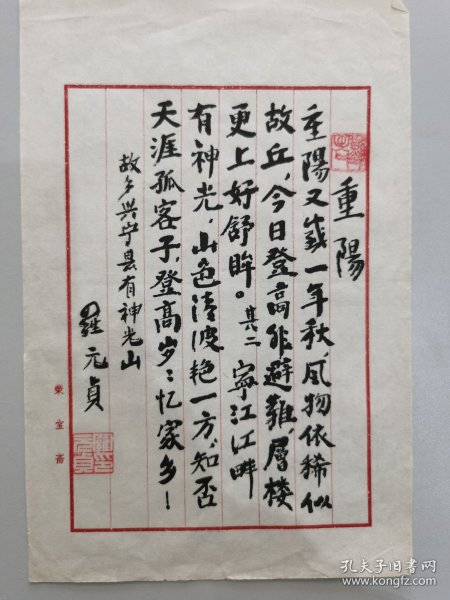 重陽
重陽又战一年秋，风物依稀似
故丘，今日登高非避難，層楼
更上好舒眸。其二 寧江江畔
有神光，山色清波艳一方。知否
天涯孤客子，登高岁〻忆家乡！
故乡兴宁县有神光山
羅元貞
荣宝斋
孔夫子旧书网
www.kongfz.com